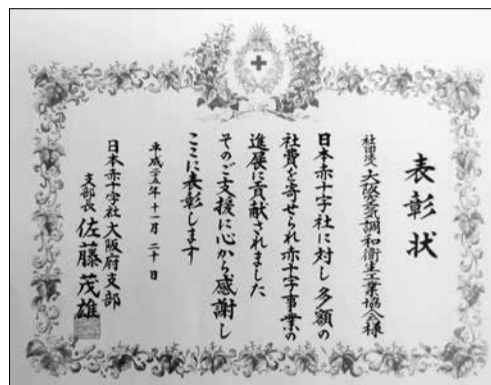 表彰状
社団法人 大阪空気調和衛生工業協会様
日本赤十字社に対し多額の
社費を寄せられ赤十字事業の
進展に貢献されました
そのご支援に心から感謝し
ここに表彰します
平成二十五年十一月二十日
日本赤十字社大阪府支部
支部長 佐藤茂雄